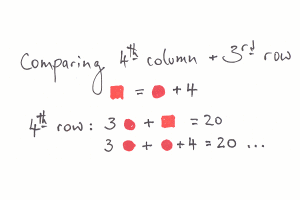 Comparing 4th column + 3rd row
🟥 = 🔴 + 4
4th row: 3 🔴 + 🟥 = 20
3 🔴 + 🔴 + 4 = 20 ...